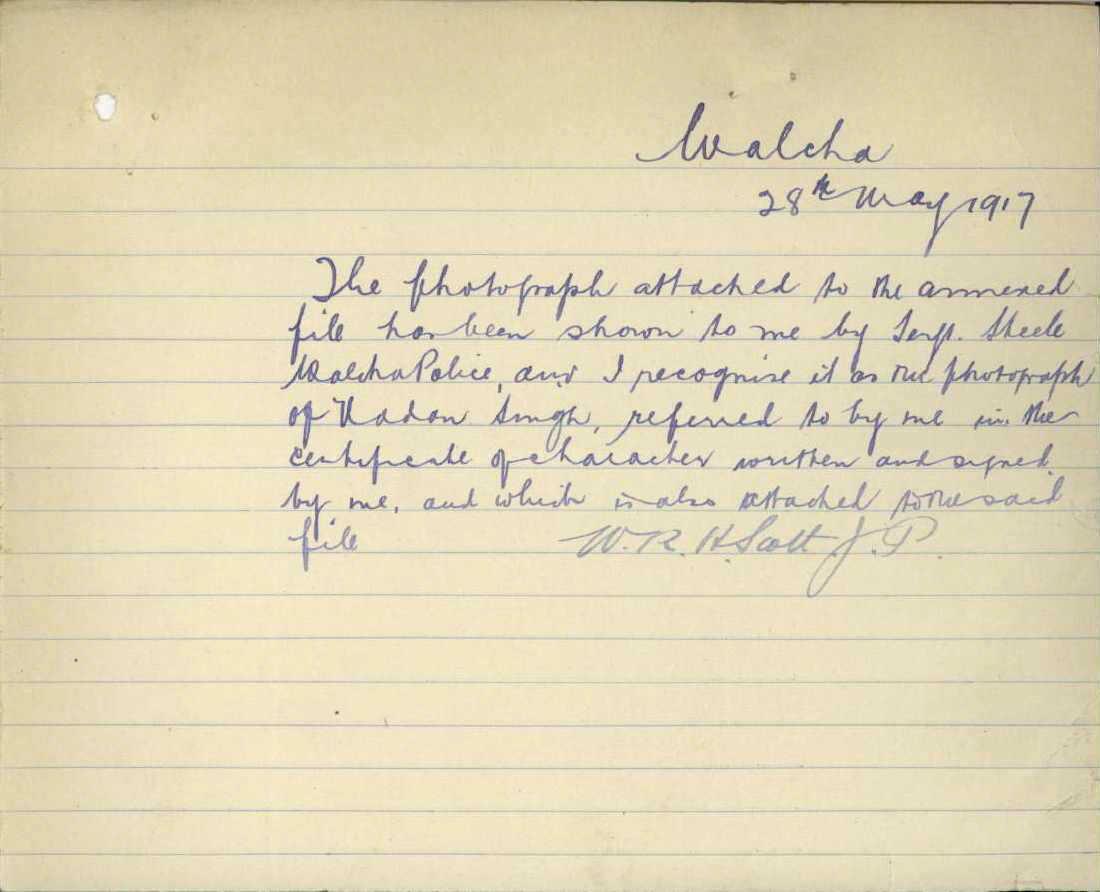 Walcha
28th May 1917
The photograph attached to the annexed
file has been shown to me by Sergt. Steele
Walcha Police, and I recognise it as the photograph
of Nadan Singh, referred to by me in the
certificate of character written and signed
by me, and which is also attached to the said
file
W. R. H. Scott J.P.